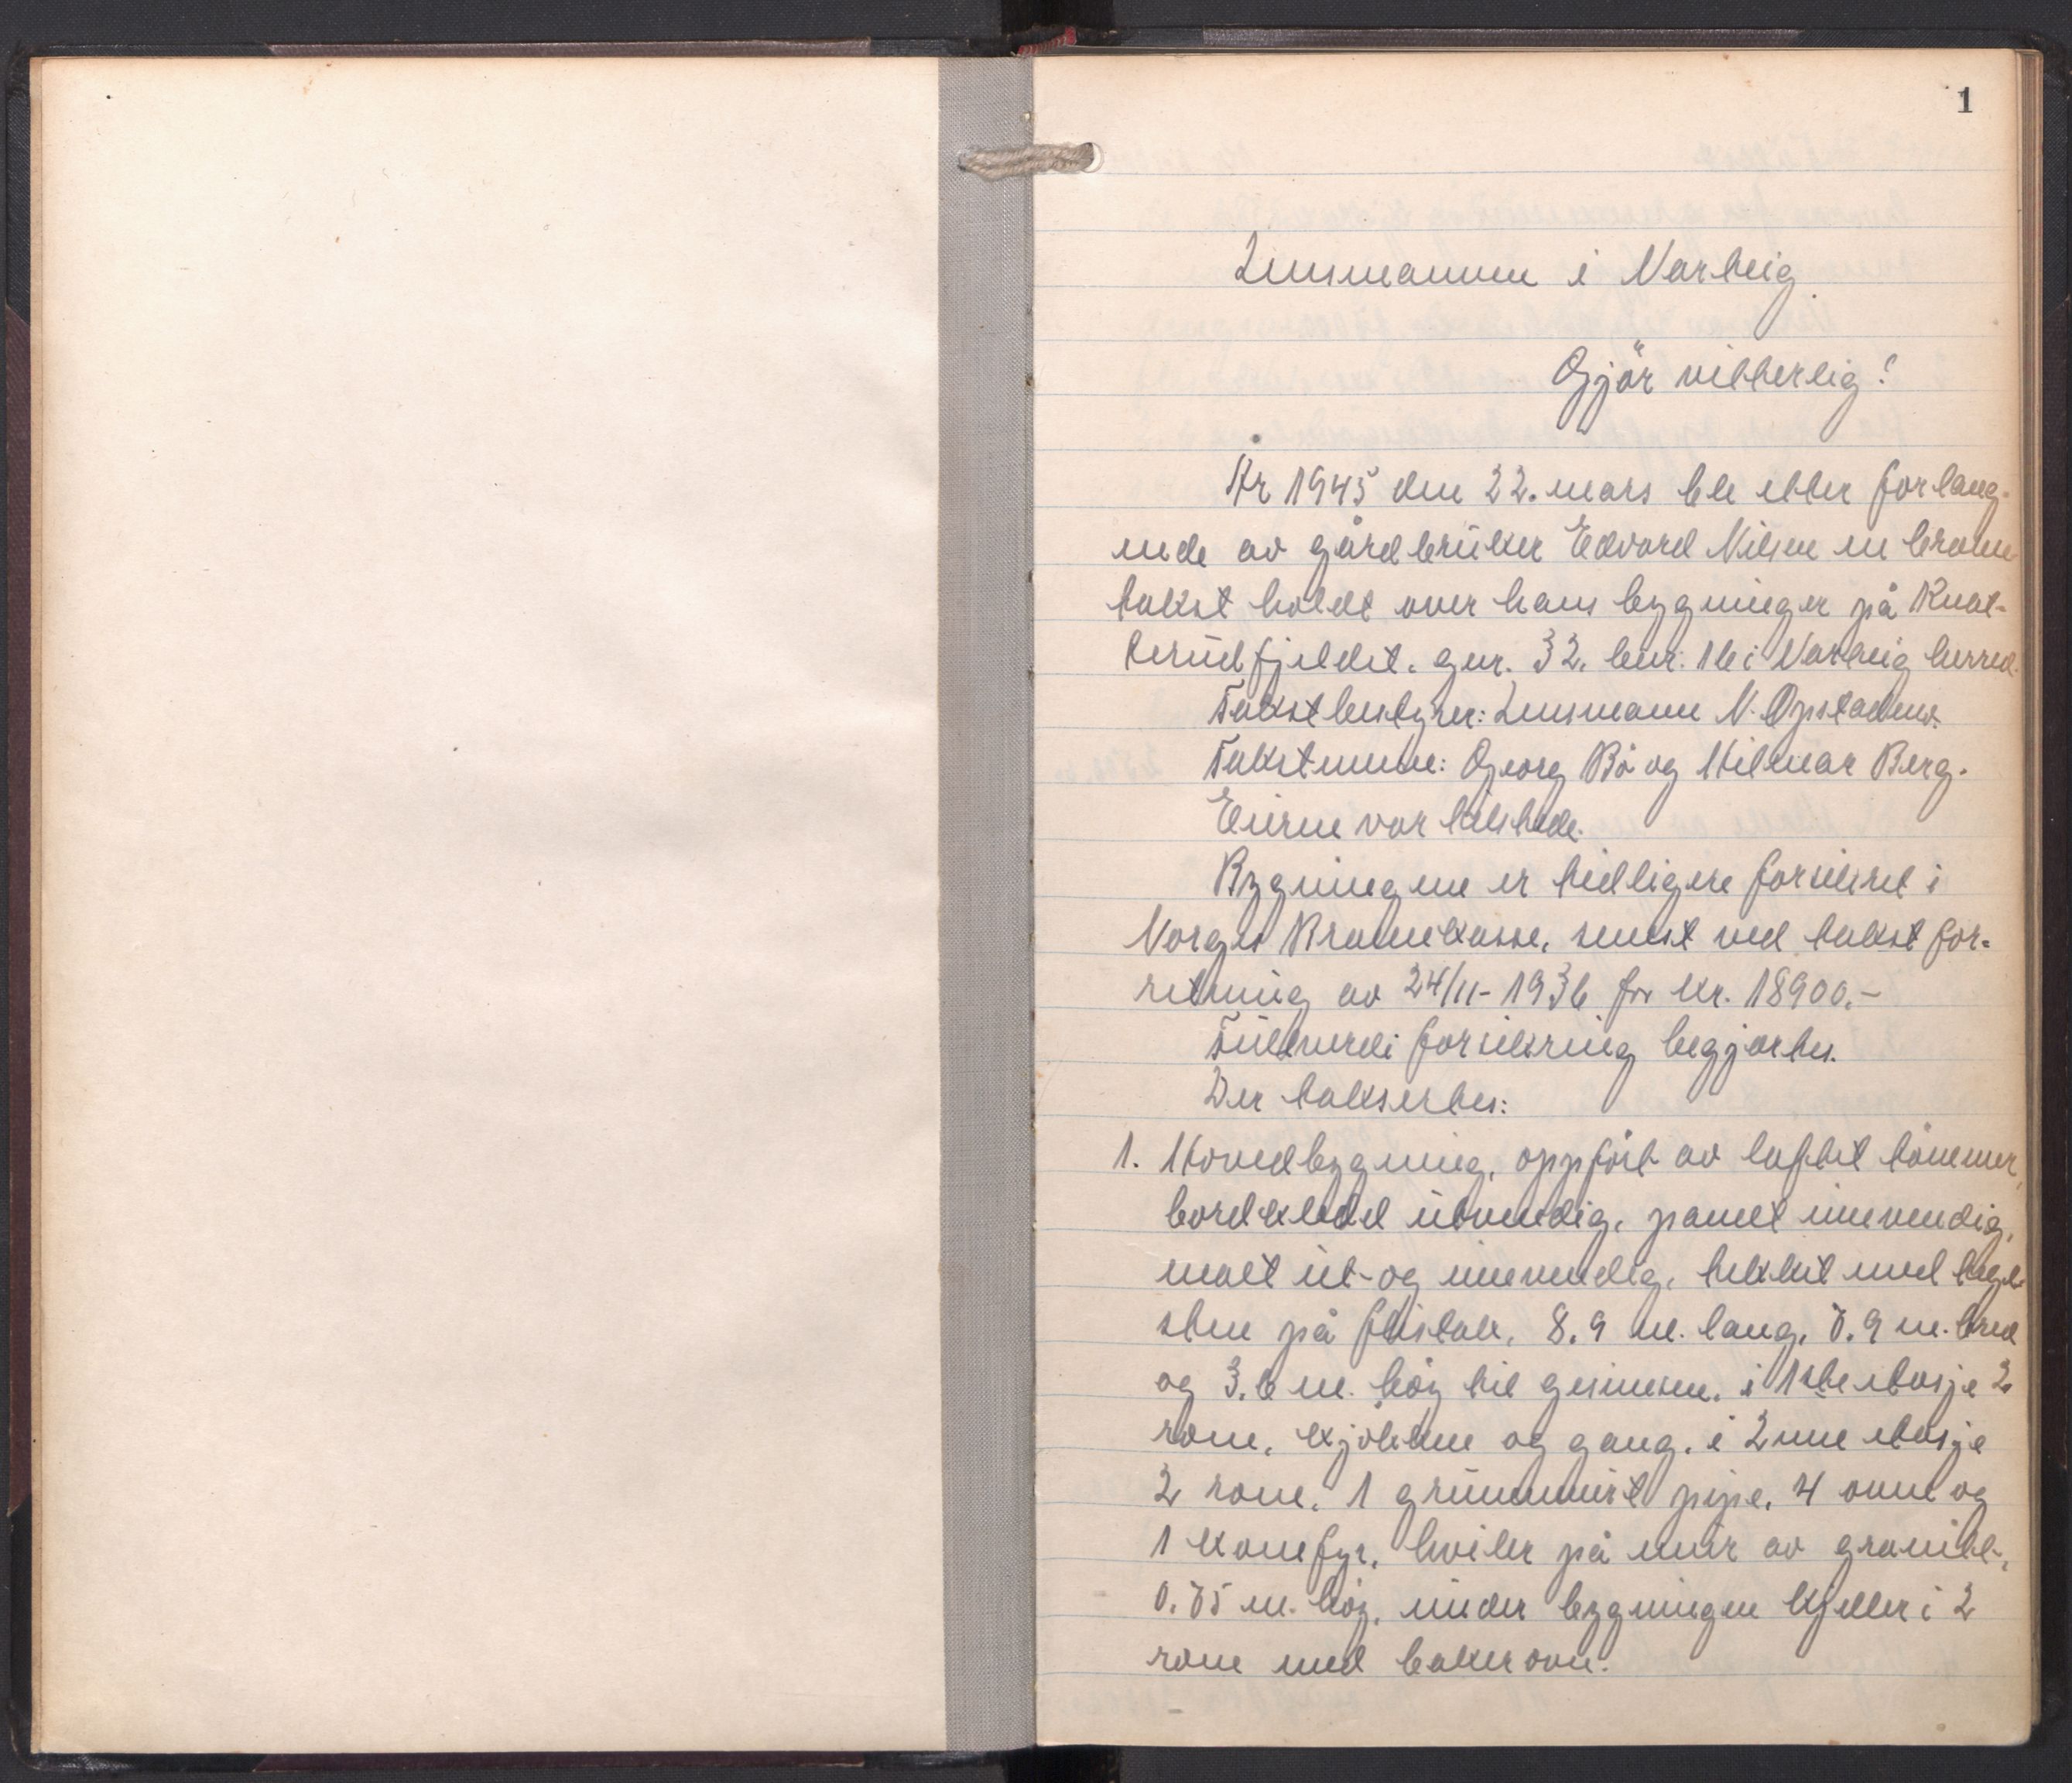 1
Lensmannen i Varteig
Gjør vitterlig!
År 1945 den 22. mars ble etter forlang-
ende av gårdbruker Edvard Nilsen en brann-
takst holdt over hans bygninger på Knat-
terudfjeldet. gnr. 32. bnr. 16 i Varteig herred.
Takstbestyrer: Lensmann N. Opstadens.
Takstmenn: Georg Bø og Hilmar Berg.
Eieren var tilstede.
Bygningene er tidligere forsikret i
Norges Brannkasse, senest ved takstfor-
retning av 24/11-1936 for kr. 18900.-
Fullverdi forsikring begjærtes.
Der taksertes:
1. Hovedbygning, oppført av laftet tømmer,
bordkledd utvendig, panelt innvendig,
malt ut- og innvendig, tekket med tegl-
sten på flistak, 8.9 m. lang, 7.9 m. bred
og 3.6 m. høg til gesimsen. i 1ste etasje 2
rom, kjøkken og gang. i 2nen etasje
2 rom. 1 grunnmurt pipe, 4 ovne og
1 komfyr, hviler på mur av granitt,
0.75 m. høg. under bygningen kjeller i 2
rom med bakerovn.